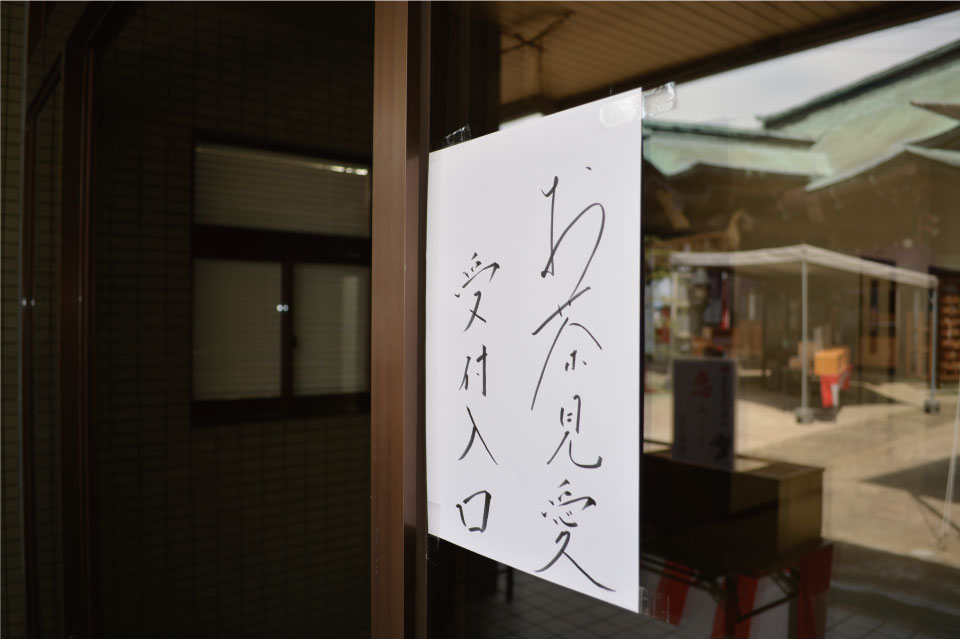 お茶見愛
受付入口